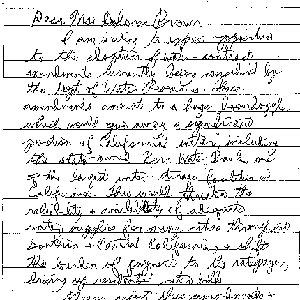 Dear Ms. Delores Brown
I am writing to express opposition
to the adoption of water contract
amendments currently being considered by
the Dept of Water Resources. These
amendments amount to a huge boondoggle
which would give away a significant
portion of California's water, including
the state-owned Kern Water Bank, one
of the largest water storage facilities in
California. This would threaten the
reliability & availability of adequate
water supplies for many cities throughout
Southern & Central California, & shift
the burden of payment to its ratepayers,
driving up residents' water bills
these amendments